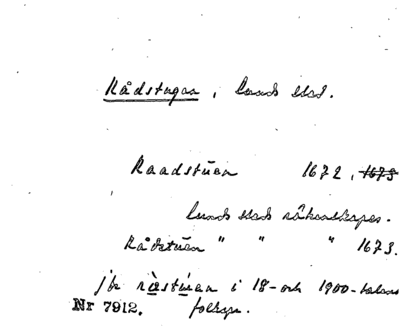 Rådstugan, Lunds stad.
Raadstüen 1672, 1673
Lunds stads räkenskaper.
Rådstüen " " " 1673.
jfr ràestúen i 18- och 1900-talens
Nr 7912. folkspr.